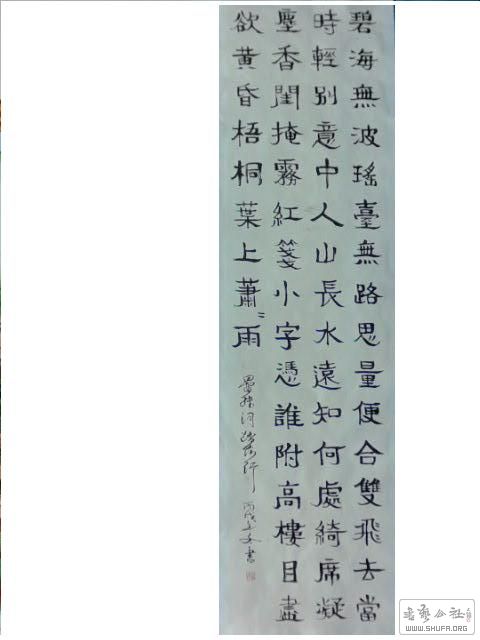 碧海無波瑤臺無路思量便合雙飛去當
時輕別意中人山長水遠知何處綺席凝
塵香閨掩霧紅箋小字憑誰附高樓目盡
欲黄昏梧桐葉上蕭〻雨
晏殊詞踏莎行 丙戌 文書
书艺公社
WWW.SHUFA.ORG